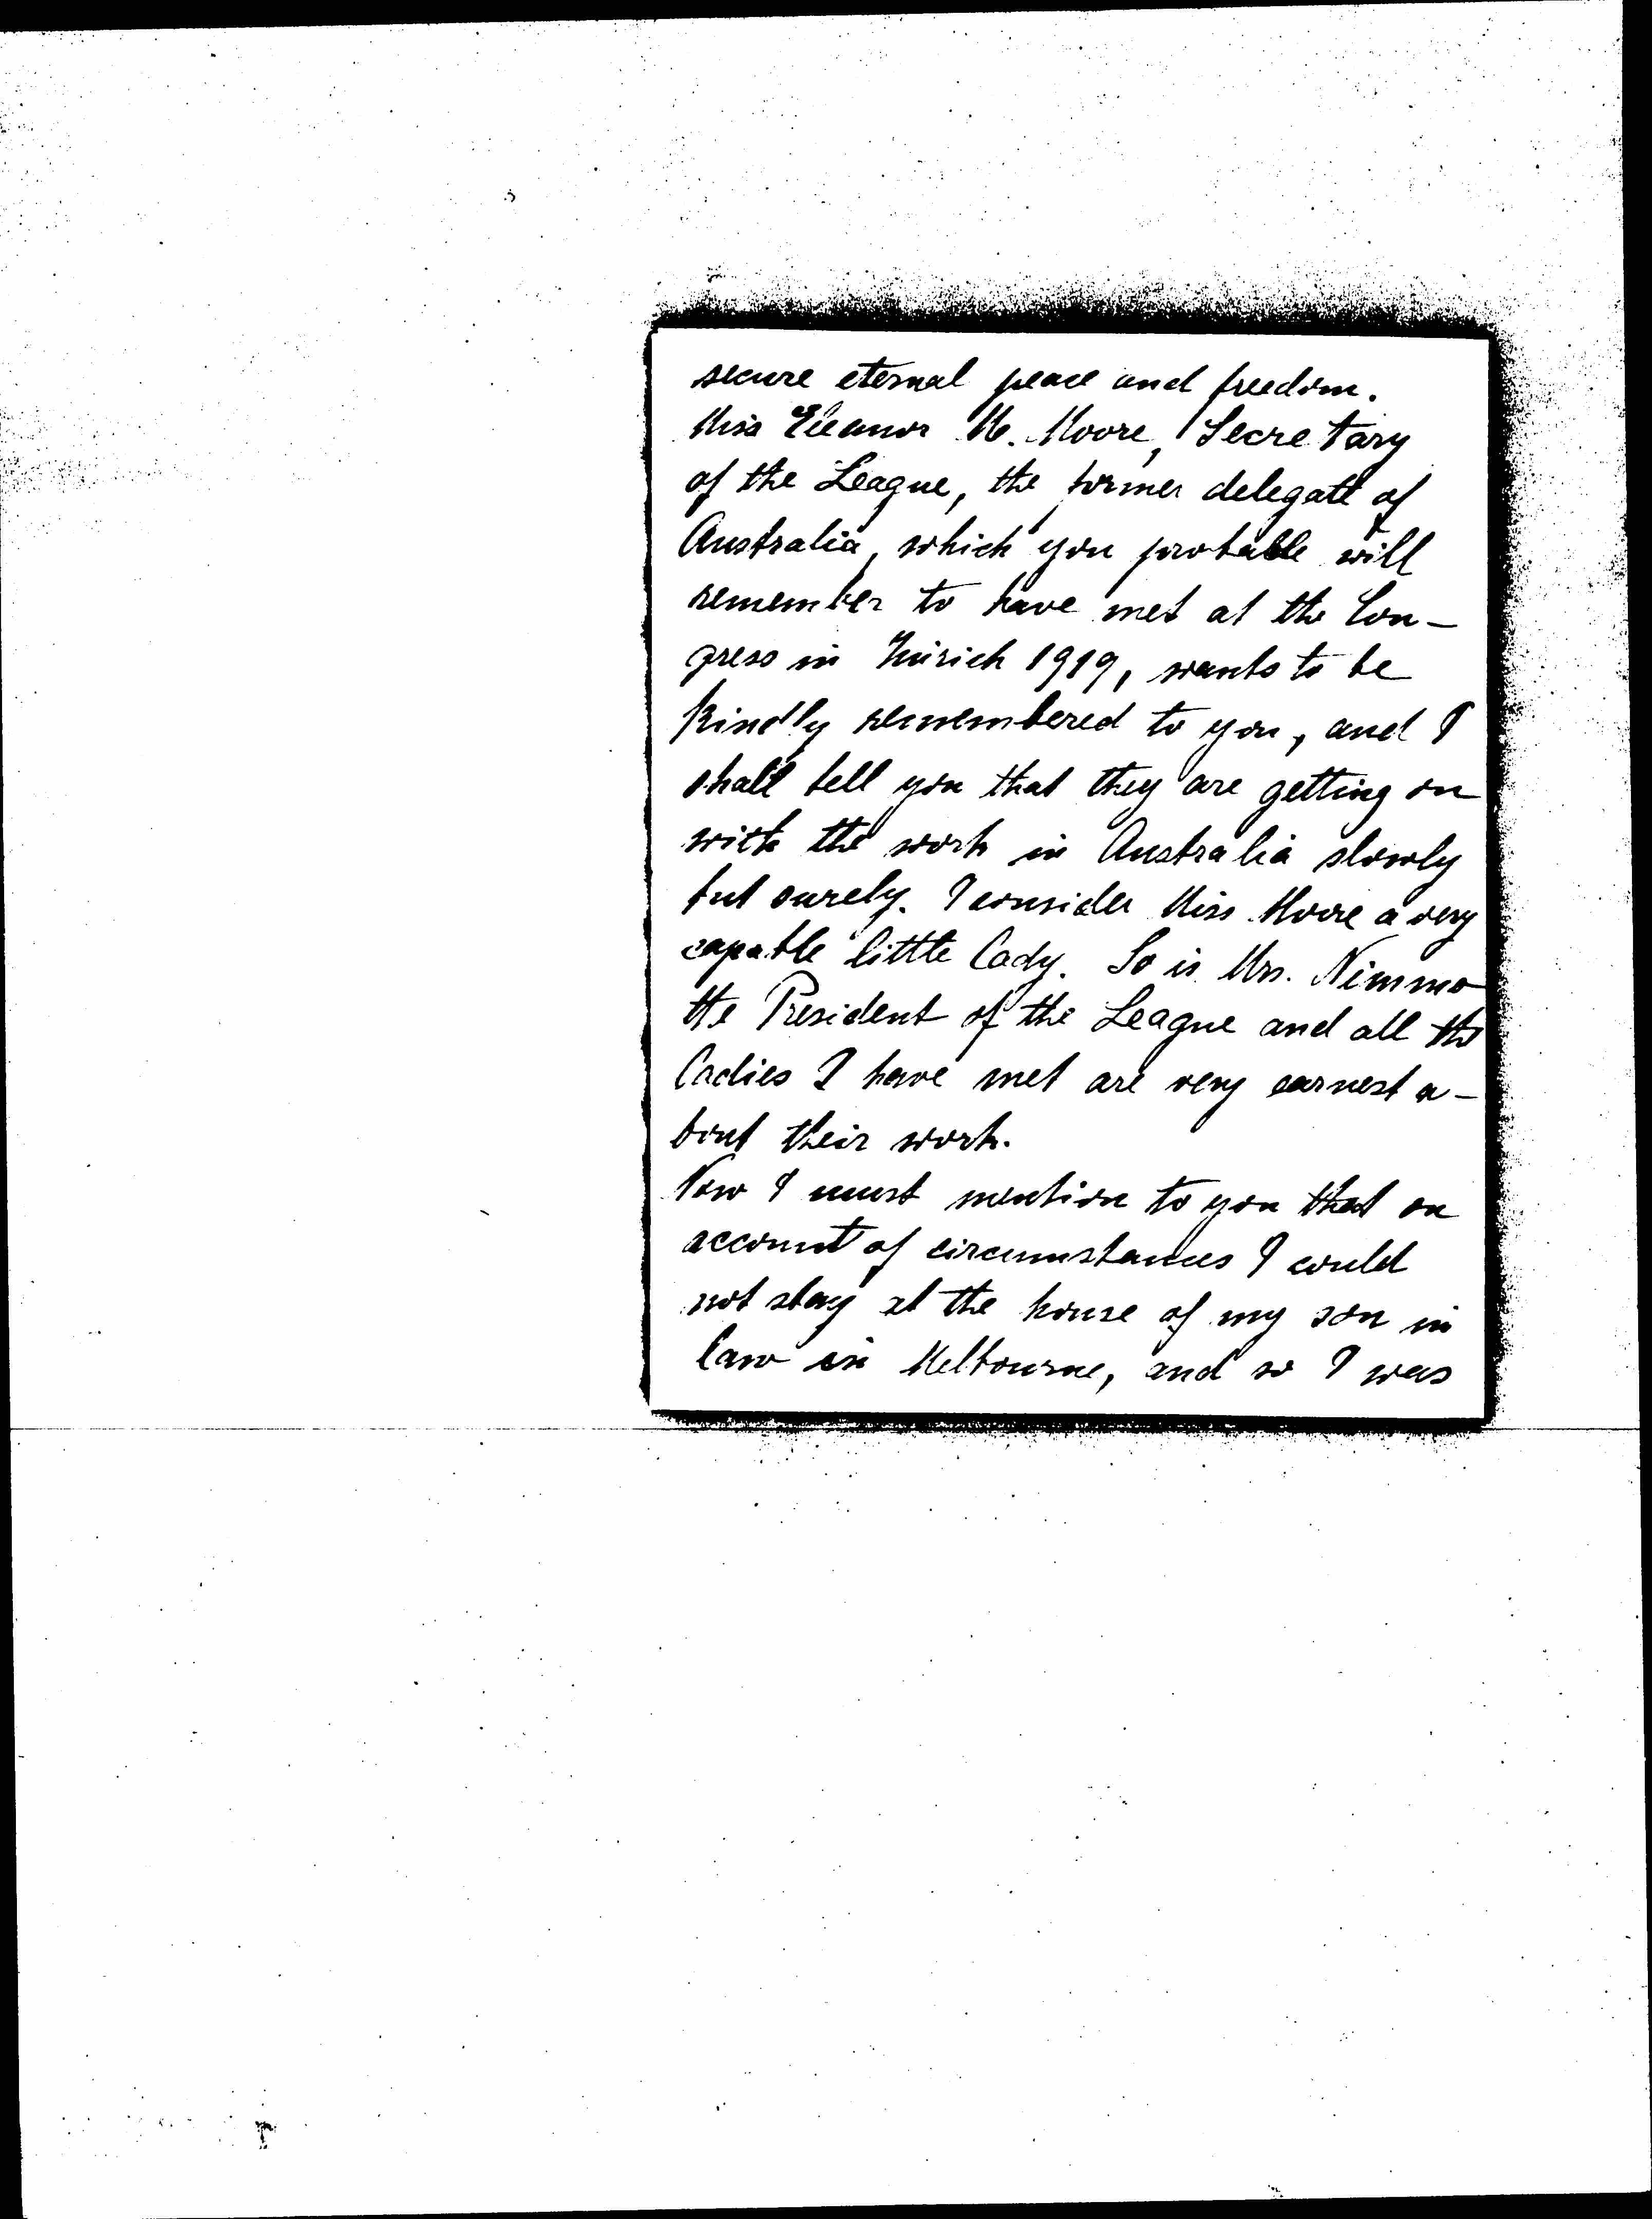 secure eternal peace and freedom.
Miss Eleanor M. Moore, Secretary
of the League, the former delegate of
Australia, which you probable will
remember to have met at the Con-
gress in Zürich 1919, wants to be
kindly remembered to you, and I
shall tell you that they are getting on
with the work in Australia slowly
but surely. I consider Miss Moore a very
capable little lady. So is Mrs. Nimmo
the President of the League and all the
ladies I have met are very earnest a-
bout their work.
Now I must mention to you that on
account of circumstances I could
not stay at the house of my son in
law in Melbourne, and so I was